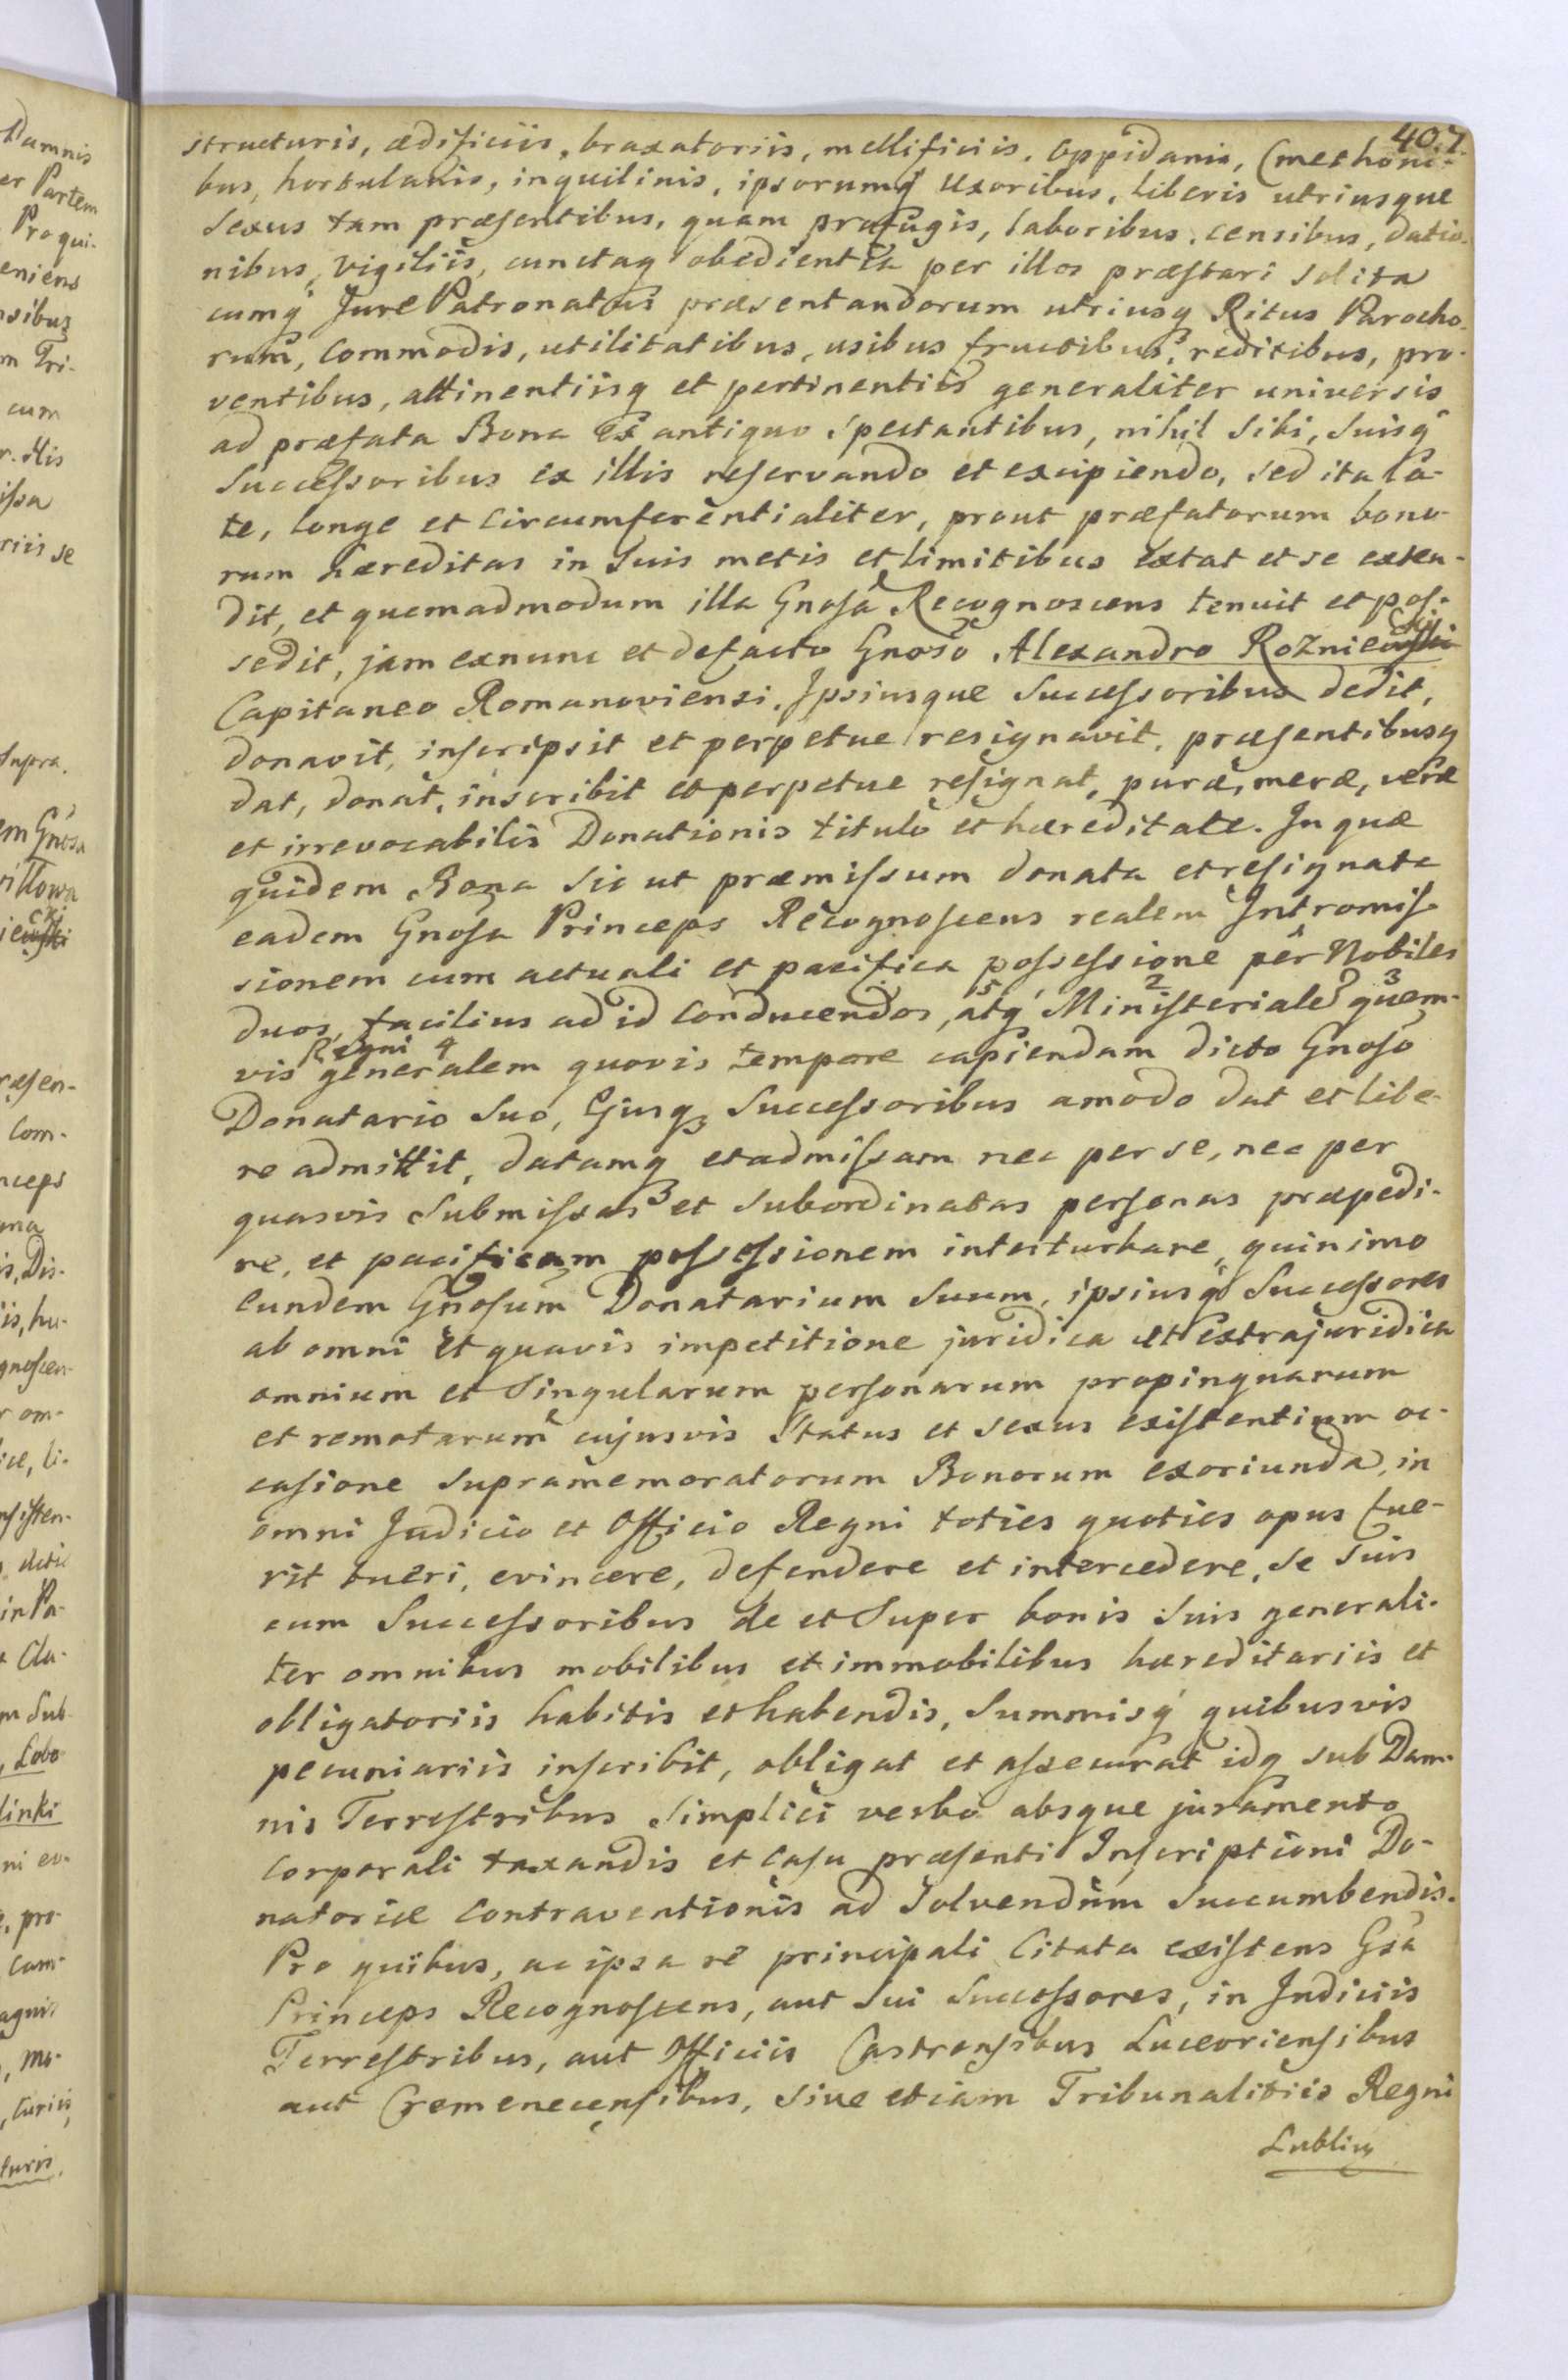 407
structuris, ædificiis, braxatoriis, mellificiis, Oppidanis, Cmethoni-
bus, hortulanis, inquilinis, ipsorumq̃ Uxoribus, liberis utriusque
Sexus tam præsentibus, quam profugis, laboribus, censibus, datio-
nibus, vigiliis, cunctaq obedientia per illos præstari solita
cumq̃ Jure Patronatus præsentandorum utriusq Ritus Parocho-
rum, commodis, utilitatibus, usibus fructibus, reditibus, pro-
ventibus, attinentiisq et pertinentiis generaliter universis
ad præfata Bona Ex antiquo Spectantibus, nihil Sibi, Suisq̃
Successoribus ex illis reservando et excipiendo, sed ita la-
te, longe et Circumferentialiter, prout præfatorum bono-
rum hæreditas in Suis metis et limitibus extat et se exten-
dit, et quemadmodum illa Gnosa Recognoscens tenuit et pos-
sedit, jam exnunc et defacto Gnoso Alexandro Roznieckij
Capitaneo Romanoviensi, Ipsiusque Successoribus dedit,
donavit, inscripsit et perpetue resignavit, præsentibusq
dat, donat, inscribit et perpetue resignat, puræ, meræ, veræ
et irrevocabilis Donationis titulo et hæreditate. In quæ
quidem Bona Sic ut præmissum donata et resignata
eadem Gnosa Princeps Recognoscens realem Intromis-
sionem cum actuali et pacifica possessione per Nobiles
duos, facilius ad id Conducendos, 5 atq̃ Ministeriale 2 quem- 3
vis Regni generalem 4 quovis tempore capiendam dicto Gnoso
Donatario Suo, Ejusq Successoribus amodo dat et libe-
re admittit, datamq et admissam nec per se, nec per
quasvis Submissas et Subordinatas personas præpedi-
re, et pacificam possessionem interturbare, quinimo
Eundem Gnosum Donatarium Suum, ipsiusq̃ Successores
ab omni et quavis impetitione juridica et Extrajuridica
omnium et Singularum personarum propinquarum
et remotarum cujusvis Status et Sexus existentium oc-
casione Supramemoratorum Bonorum exoriunda, in
omni Judicio et Officio Regni toties quoties opus fue-
rit tueri, evincere, defendere et intercedere, Se Suis
cum Successoribus de et Super bonis Suis generali-
ter omnibus mobilibus et immobilibus hæreditariis et
obligatoriis habitis et habendis, Summisq̃ quibusvis
pecuniariis inscribit, obligat et assecurat idq sub Dam-
nis Terrestribus Simplici verbo absque juramento
Corporali taxandis et Casu præsenti Inscriptioni Do-
natoriæ Contraventionis ad Solvendum Succumbendis.
Pro quibus, ac ipsa re principali Citata existens Gsa
Princeps Recognoscens, aut Sui Successores, in Judiciis
Terrestribus, aut Officiis Castrensibus Luceoriensibus
aut Cremenecensibus, Sive etiam Tribunalitiis Regni
Lublin